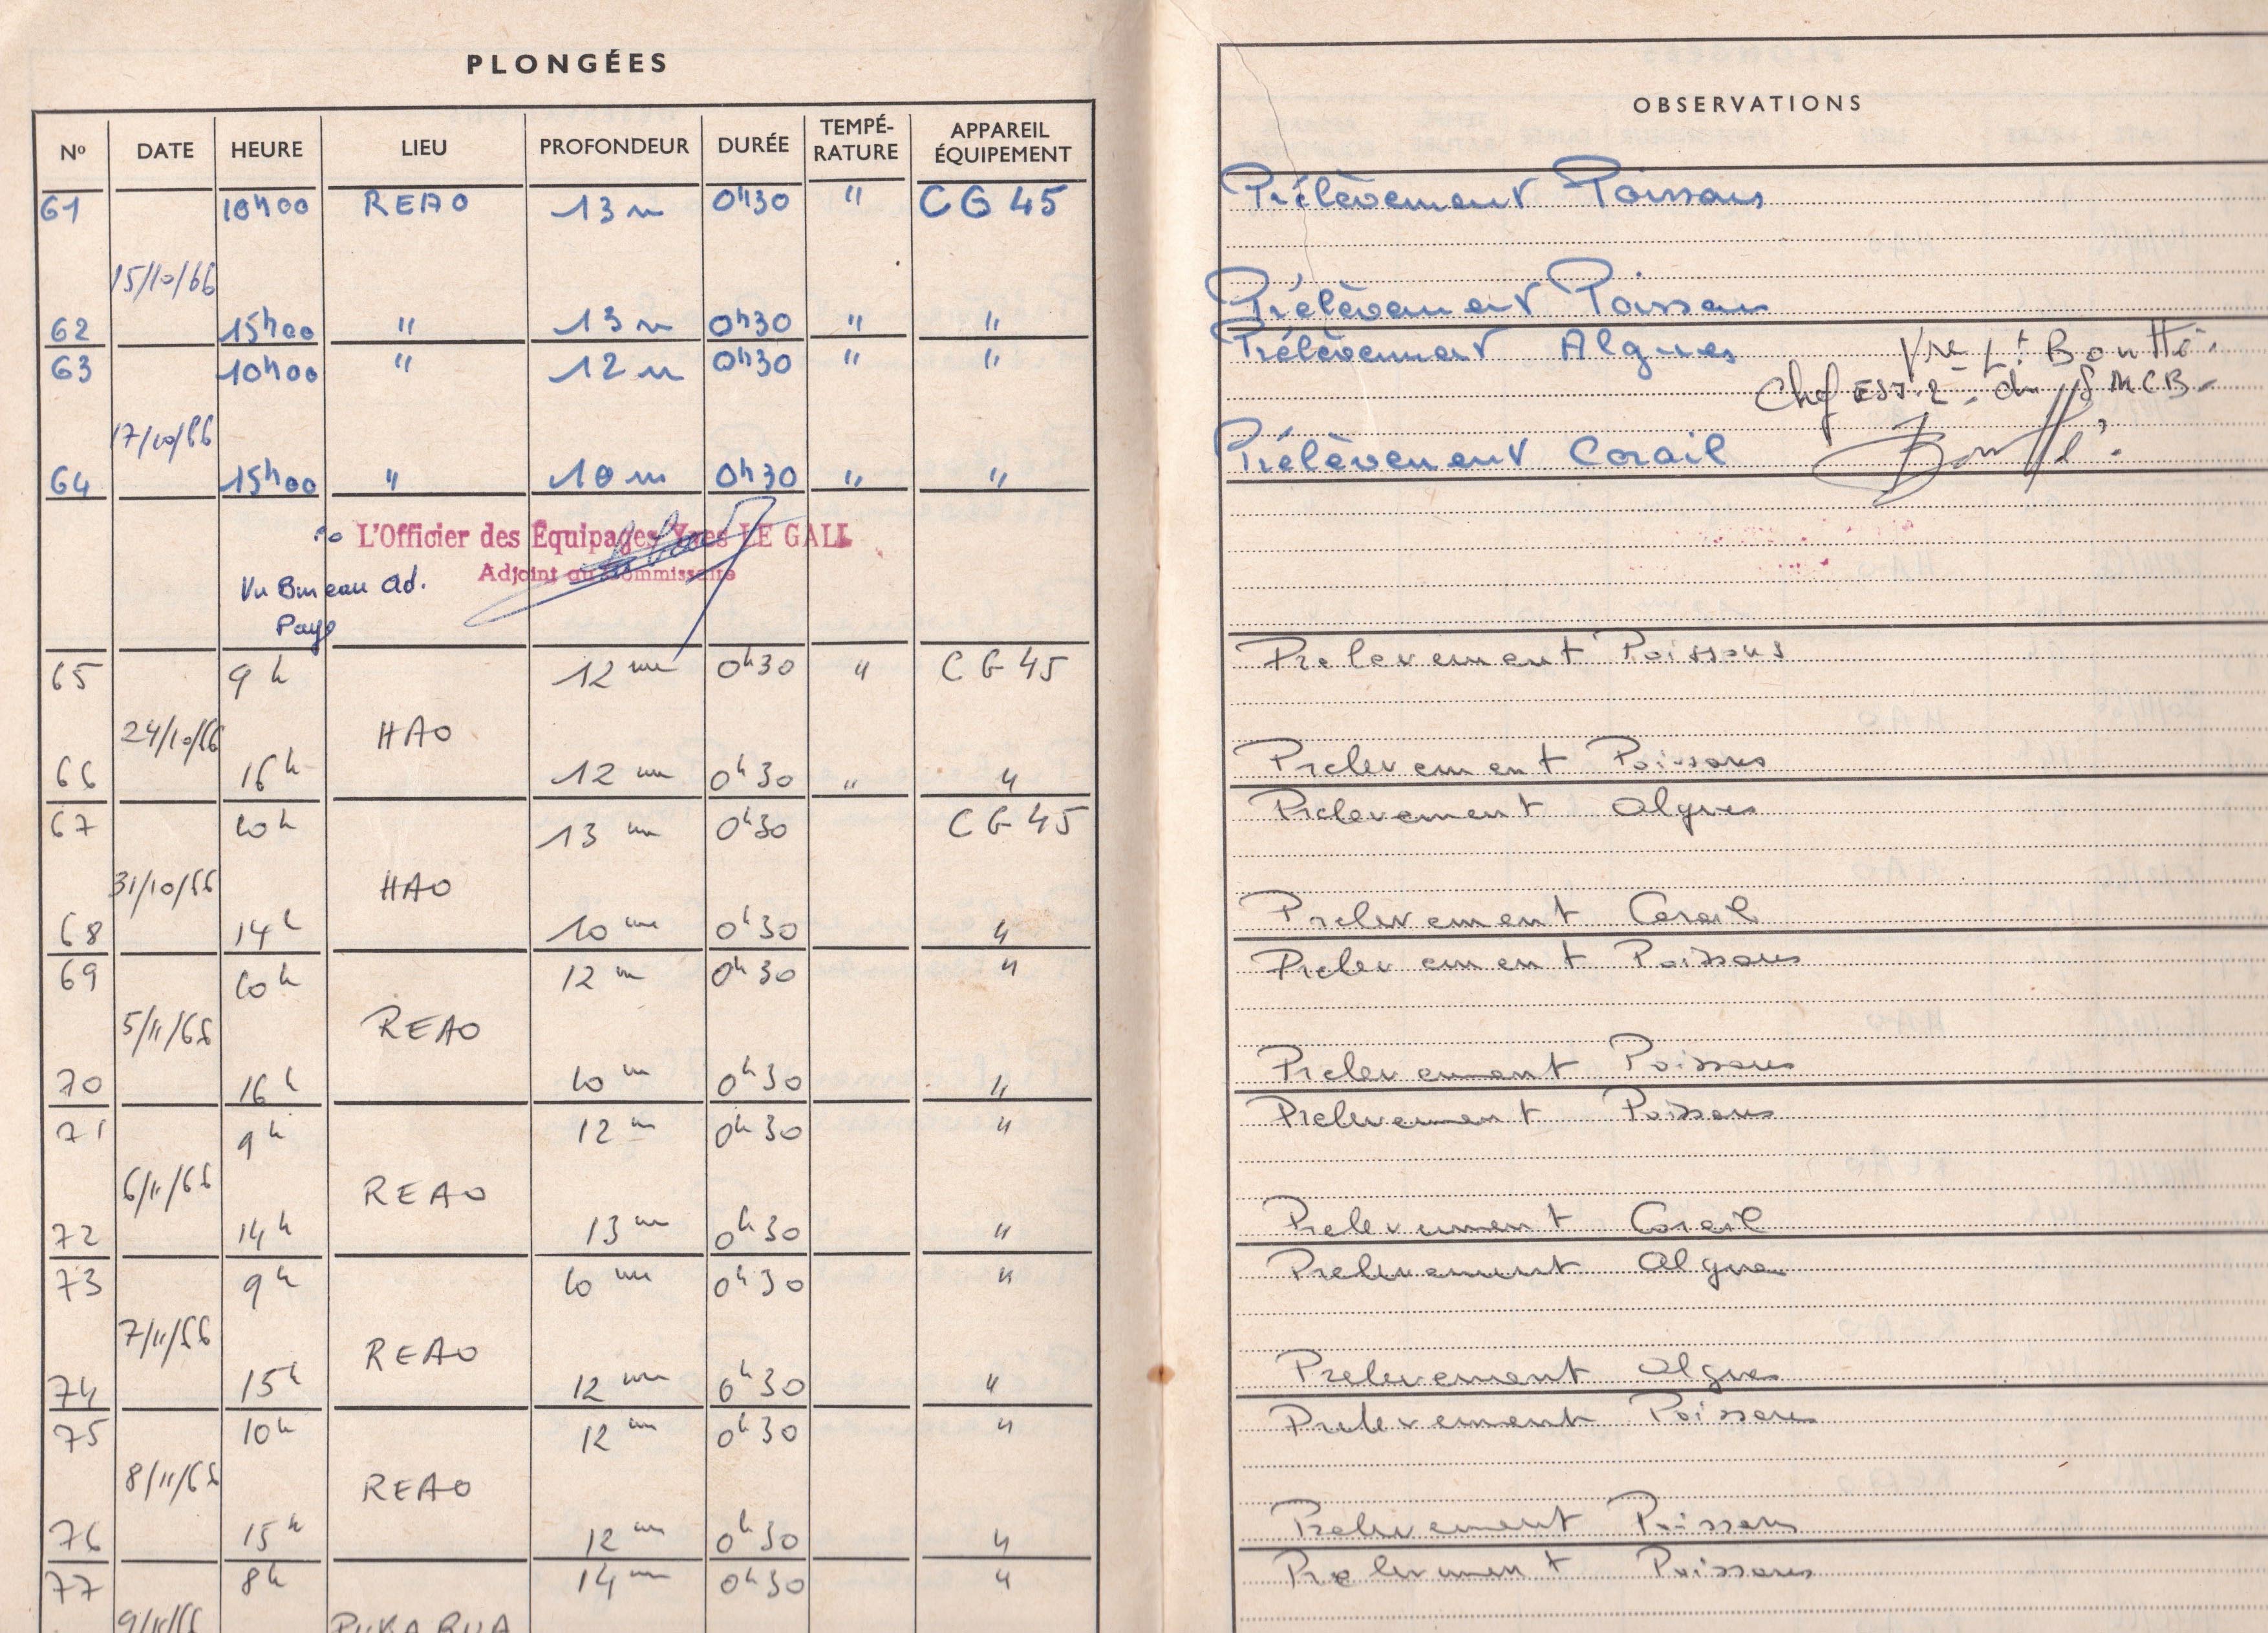 PLONGÉES
Nº DATE HEURE LIEU PROFONDEUR DURÉE TEMPÉ-RATURE APPAREIL ÉQUIPEMENT
61 10h00 REAO 13 m 0h30 " CG 45
15/10/66
62 15h00 " 13 m 0h30 " "
63 10h00 " 12 m 0h30 " "
17/10/66
64 15h00 " 10 m 0h30 " "
L'Officier des Équipages Yves LE GALL
Adjoint au Commissaire
Vu Bureau Ad.
Paye
65 9h 12 m 0h30 " CG 45
24/10/66 HAO
66 16h 12 m 0h30 " "
67 10h 13 m 0h30 CG 45
31/10/66 HAO
68 14h 10 m 0h30 "
69 10h 12 m 0h30 "
5/11/66 REAO
70 16h 10 m 0h30 "
71 9h 12 m 0h30 "
6/11/66 REAO
72 14h 13 m 0h30 "
73 9h 10 m 0h30 "
7/11/66 REAO
74 15h 12 m 0h30 "
75 10h 12 m 0h30 "
8/11/66 REAO
76 15h 12 m 0h30 "
77 8h 14 m 0h30 "
9/11/66 PUKARUA
OBSERVATIONS
Prélèvement Poissons
Prélèvement Poissons
Prélèvement Algues
Chef du SMCB
Prélèvement Corail
Prelevement Poissons
Prelevement Poissons
Prelevement Algues
Prelevement Corail
Prelevement Poissons
Prelevement Poissons
Prelevement Poissons
Prelevement Corail
Prelevement Algues
Prelevement Algues
Prelevement Poissons
Prelevement Poissons
Prelevement Poissons